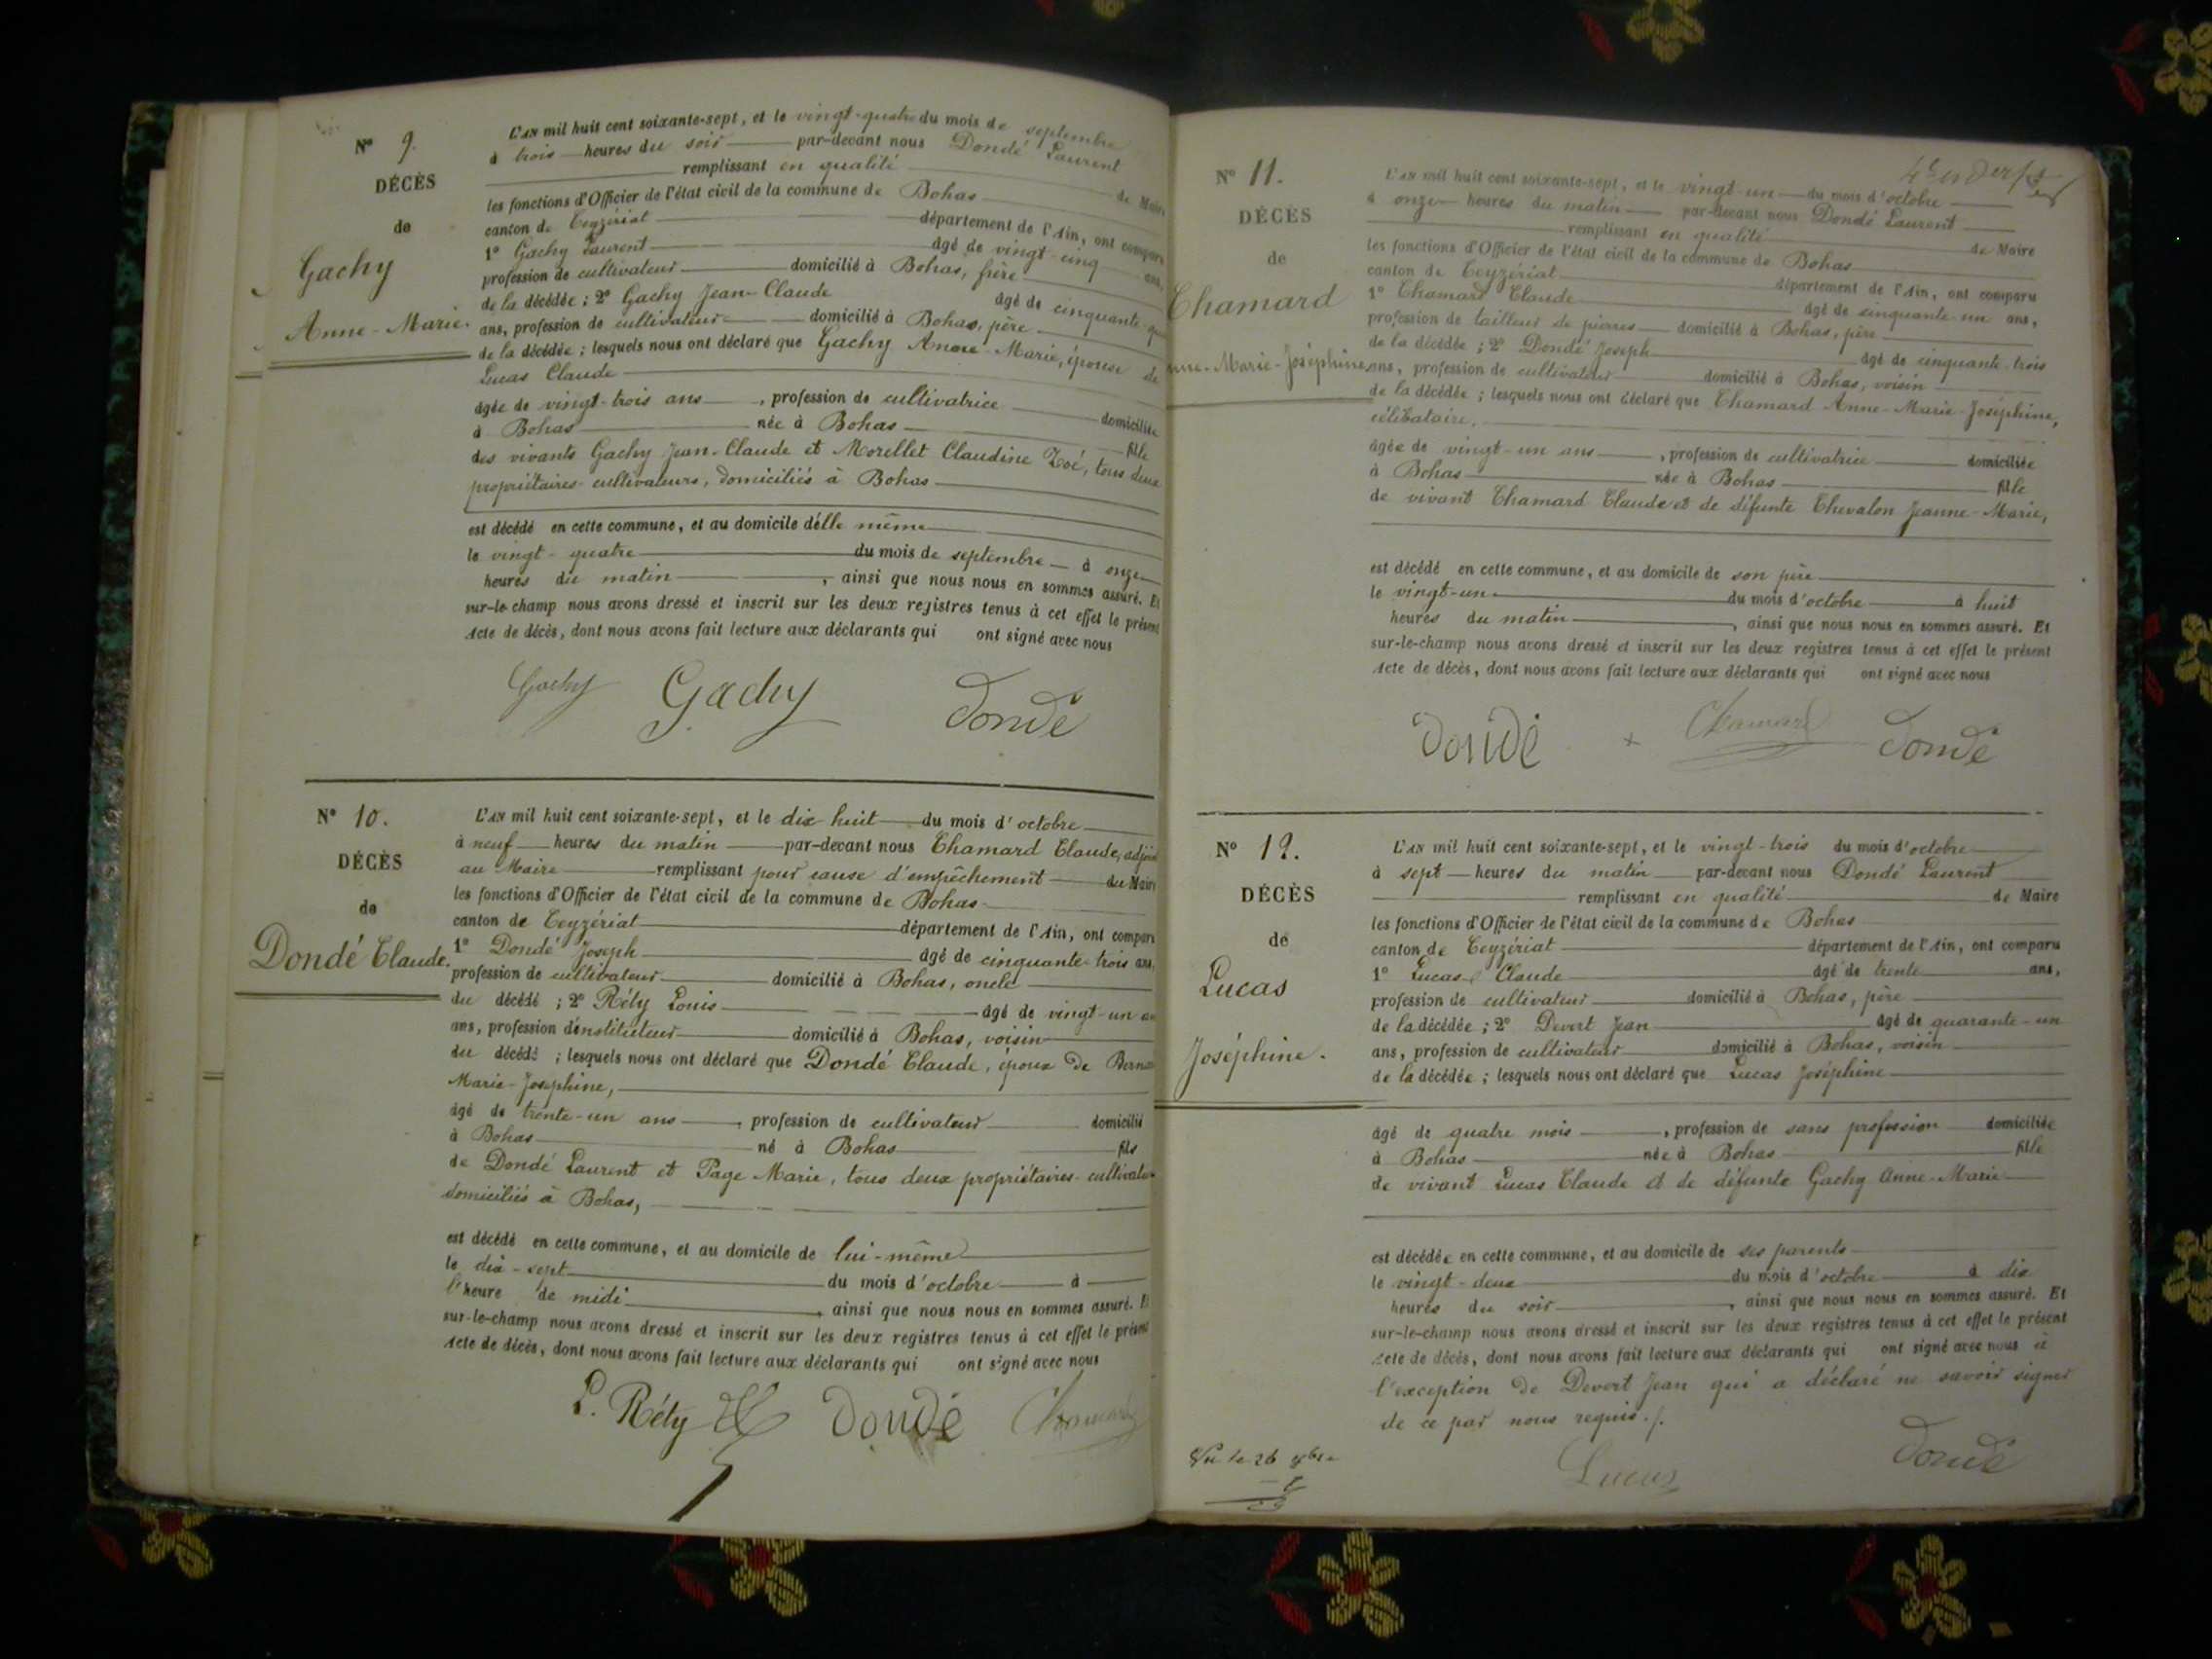 N° 9.
DÉCÈS
de
Gachy
Anne-Marie.
L'AN mil huit cent soixante-sept, et le vingt-quatre du mois de septembre
à trois heures du soir par-devant nous Dondé Laurent
remplissant en qualité de Maire
les fonctions d'Officier de l'état civil de la commune de Bohas
canton de Ceyzériat département de l'Ain, ont comparu
1° Gachy Laurent âgé de vingt-cinq ans,
profession de cultivateur domicilié à Bohas, frère
de la décédée ; 2° Gachy Jean-Claude âgé de cinquante
ans, profession de cultivateur domicilié à Bohas, père
de la décédée ; lesquels nous ont déclaré que Gachy Anne-Marie, épouse de
Lucas Claude
âgée de vingt-trois ans, profession de cultivatrice domiciliée
à Bohas née à Bohas fille
des vivants Gachy Jean-Claude et Morellet Claudine Zoé, tous deux
propriétaires-cultivateurs, domiciliés à Bohas
est décédé en cette commune, et au domicile d'elle même
le vingt-quatre du mois de septembre à onze
heures du matin, ainsi que nous nous en sommes assuré. Et
sur-le-champ nous avons dressé et inscrit sur les deux registres tenus à cet effet le présent
Acte de décès, dont nous avons fait lecture aux déclarants qui ont signé avec nous
Gachy Gachy Dondé
N° 10.
DÉCÈS
de
Dondé Claude.
L'AN mil huit cent soixante-sept, et le dix huit du mois d'octobre
à neuf heures du matin par-devant nous Chamard Claude, adjoint
au Maire remplissant pour cause d'empêchement du Maire
les fonctions d'Officier de l'état civil de la commune de Bohas
canton de Ceyzériat département de l'Ain, ont comparu
1° Dondé Joseph âgé de cinquante-trois ans,
profession de cultivateur domicilié à Bohas, oncle
du décédé ; 2° Réty Louis âgé de vingt-un
ans, profession d'instituteur domicilié à Bohas, voisin
du décédé ; lesquels nous ont déclaré que Dondé Claude, époux de
Marie-Josephine,
âgé de trente-un ans, profession de cultivateur domicilié
à Bohas né à Bohas fils
de Dondé Laurent et Page Marie, tous deux propriétaires-cultivate
domiciliés à Bohas,
est décédé en cette commune, et au domicile de lui-même
le dix-sept du mois d'octobre à
l'heure de midi, ainsi que nous nous en sommes assuré. Et
sur-le-champ nous avons dressé et inscrit sur les deux registres tenus à cet effet le présent
Acte de décès, dont nous avons fait lecture aux déclarants qui ont signé avec nous
L. Réty Dondé Chamard
N° 11.
DÉCÈS
de
Chamard
nne-Marie-Joséphine
L'AN mil huit cent soixante-sept, et le vingt-un du mois d'octobre
à onze heures du matin par-devant nous Dondé Laurent
remplissant en qualité de Maire
les fonctions d'Officier de l'état civil de la commune de Bohas
canton de Ceyzériat département de l'Ain, ont comparu
1° Chamard Claude âgé de cinquante-un ans,
profession de tailleur de pierres domicilié à Bohas, père
de la décédée ; 2° Dondé Joseph âgé de cinquante-trois
ans, profession de cultivateur domicilié à Bohas, voisin
de la décédée ; lesquels nous ont déclaré que Chamard Anne-Marie-Joséphine,
célibataire,
âgée de vingt-un ans, profession de cultivatrice domiciliée
à Bohas née à Bohas fille
de vivant Chamard Claude et de défunte Chevalon Jeanne-Marie,
est décédé en cette commune, et au domicile de son père
le vingt-un du mois d'octobre à huit
heures du matin, ainsi que nous nous en sommes assuré. Et
sur-le-champ nous avons dressé et inscrit sur les deux registres tenus à cet effet le présent
Acte de décès, dont nous avons fait lecture aux déclarants qui ont signé avec nous
Dondé Chamard Dondé
N° 12.
DÉCÈS
de
Lucas
Joséphine.
L'AN mil huit cent soixante-sept, et le vingt-trois du mois d'octobre
à sept heures du matin par-devant nous Dondé Laurent
remplissant en qualité de Maire
les fonctions d'Officier de l'état civil de la commune de Bohas
canton de Ceyzériat département de l'Ain, ont comparu
1° Lucas Claude âgé de trente ans,
profession de cultivateur domicilié à Bohas, père
de la décédée ; 2° Devert Jean âgé de quarante-un
ans, profession de cultivateur domicilié à Bohas, voisin
de la décédée ; lesquels nous ont déclaré que Lucas Joséphine
âgé de quatre mois, profession de sans profession domiciliée
à Bohas née à Bohas fille
de vivant Lucas Claude et de défunte Gachy Anne-Marie
est décédée en cette commune, et au domicile de ses parents
le vingt-deux du mois d'octobre à dix
heures du soir, ainsi que nous nous en sommes assuré. Et
sur-le-champ nous avons dressé et inscrit sur les deux registres tenus à cet effet le présent
Acte de décès, dont nous avons fait lecture aux déclarants qui ont signé avec nous à
l'exception de Devert Jean qui a déclaré ne savoir signer
de ce par nous requis.
Lucas Dondé
Vu le 26